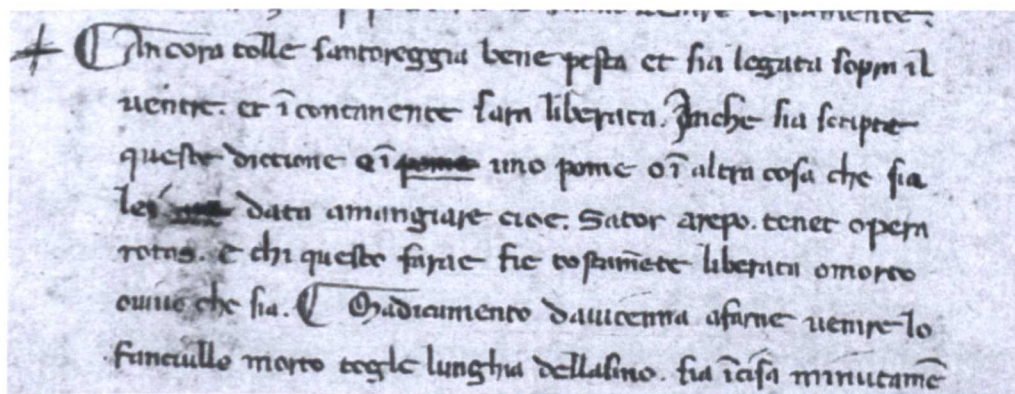 Ancora tolle santoreggia bene pesta et sia legata sopra il
uentre. et ī contanente sara liberata. Anche sia scripte
queste dictione ī uno pome o ī altra cosa che sia
lei data amangiare cioe. Sator arepo. tenet opera
rotas. E chi queste farae fie tostamēte liberata omorto
ouiuo che sia. Madicamento dauicenna afarne uenire lo
fanciullo morto togle lunghia dellasino. sia īcisa minutamē